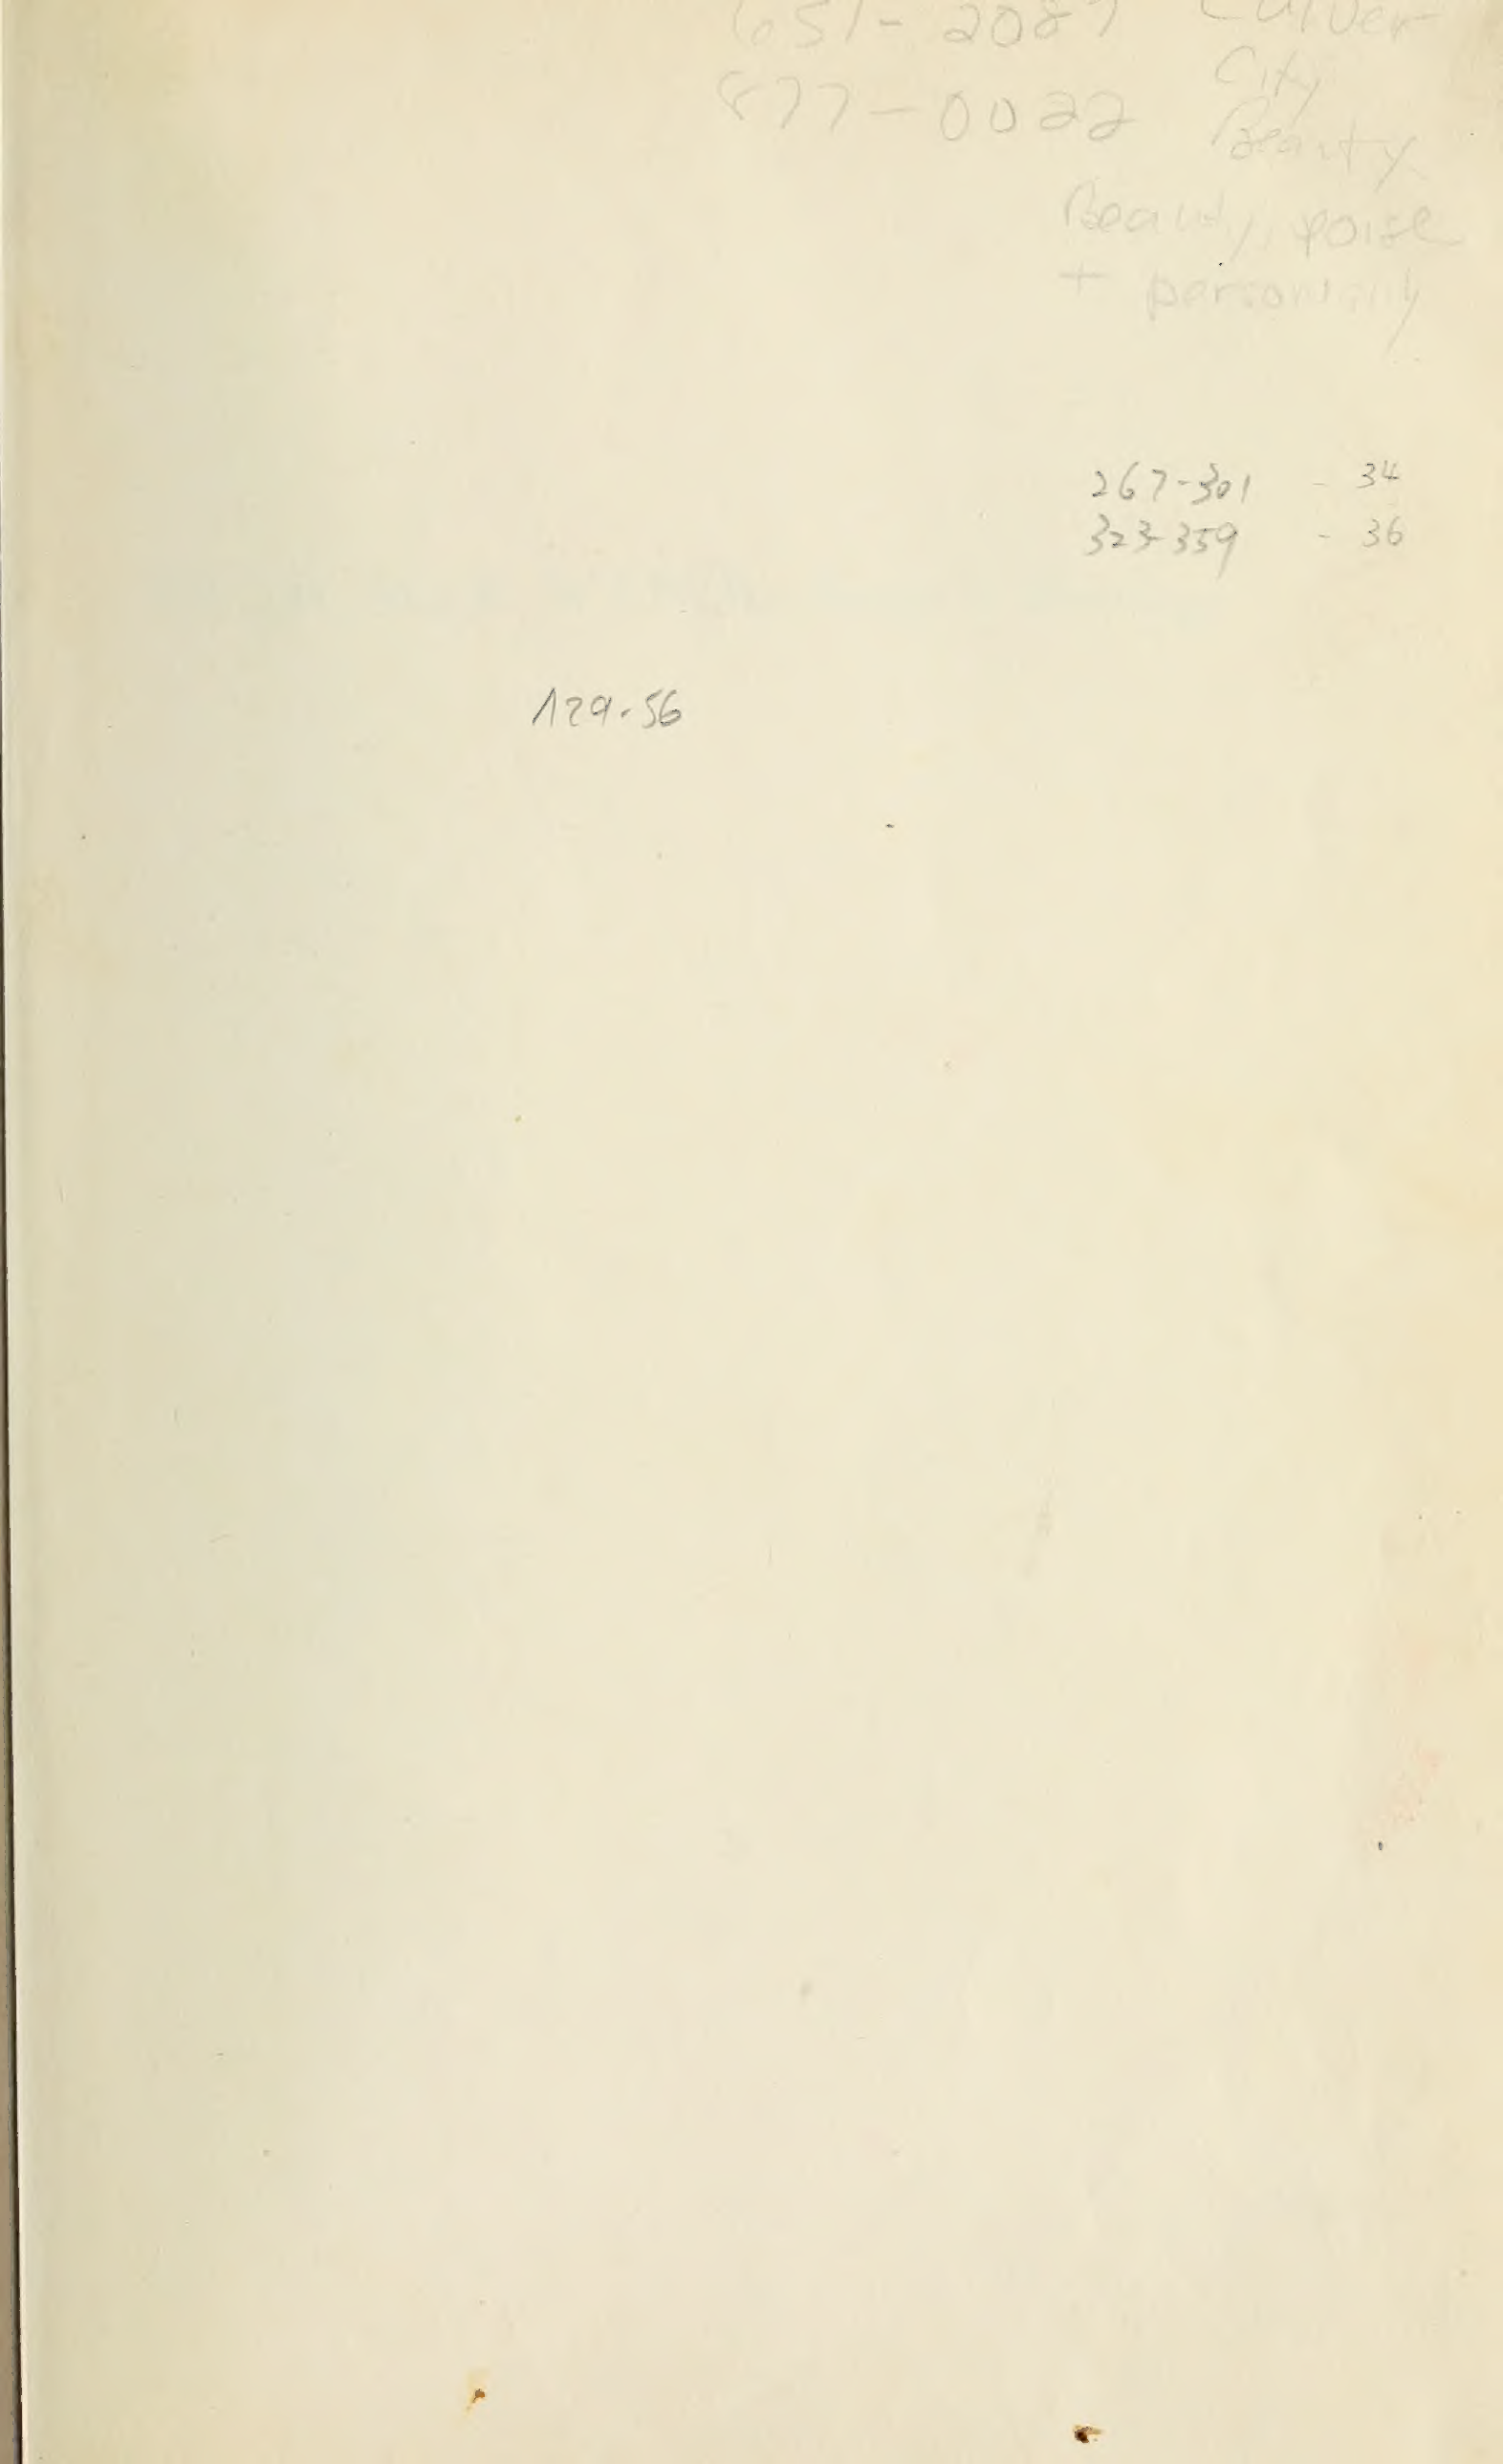 651-2087 Culver
City
877-0022 Beauty
Beauty, poise
+ personality
267-301 - 34
323-359 - 36
129-56